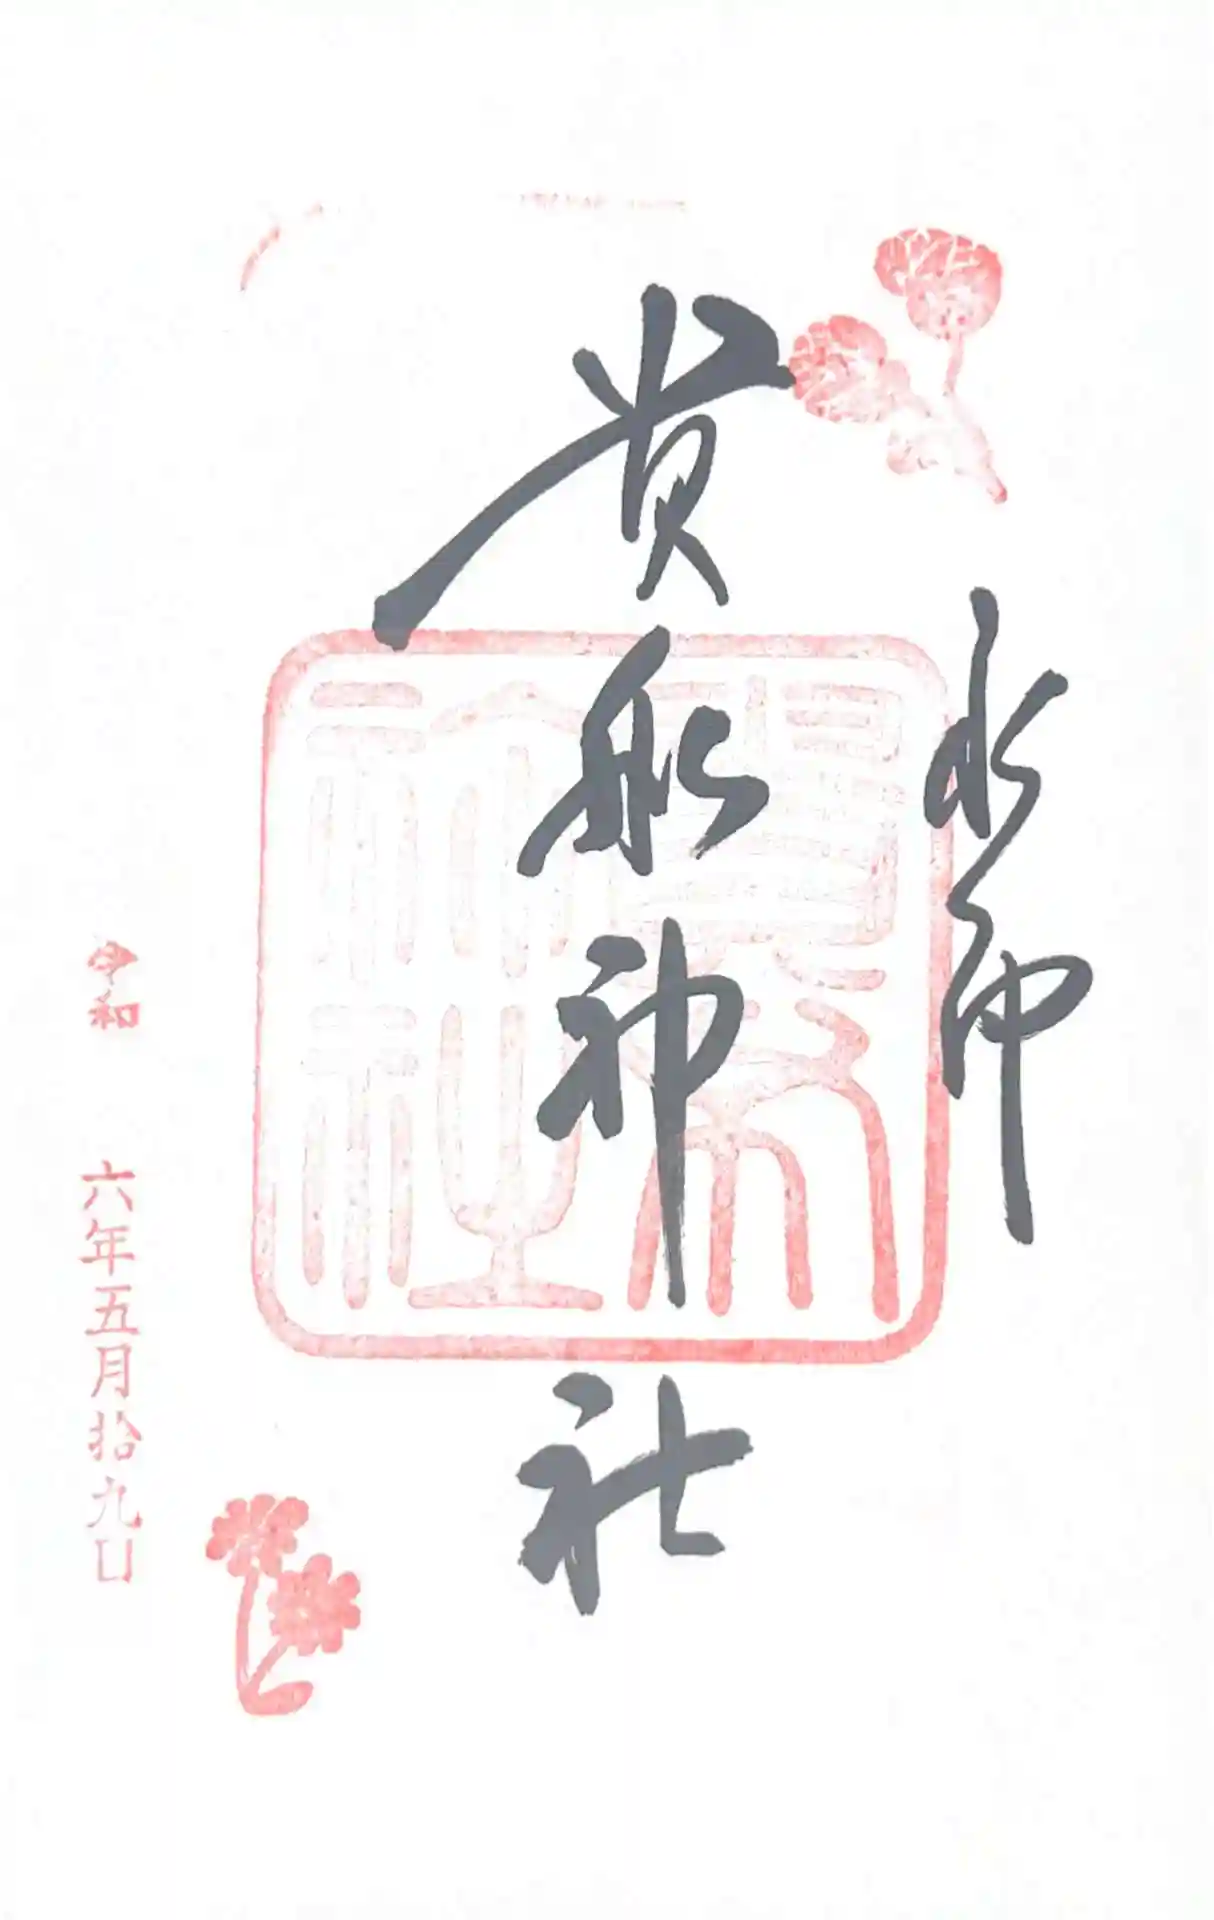 水
貴船神社
神社
令和 六年五月拾九日